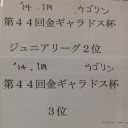 '14.1月 ウゴリン
第44回金ギャラドス杯
ジュニアリーグ2位
'14.1月 ウゴリン
第44回金ギャラドス杯
3位